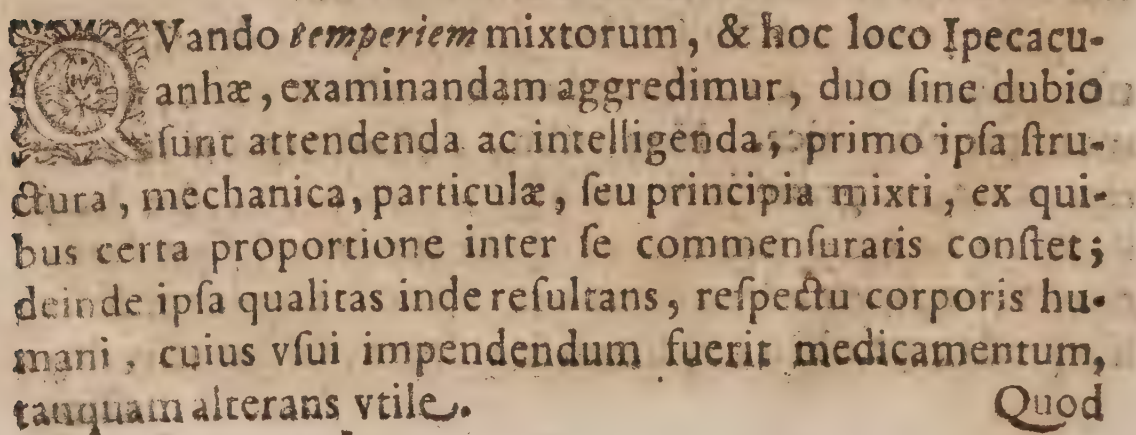 QVando temperiem mixtorum, & hoc loco Ipecacu-
anhæ, examinandam aggredimur, duo ſine dubio
ſunt attendenda ac intelligenda; primo ipſa ſtru-
ctura, mechanica, particulæ, ſeu principia mixti, ex qui-
bus certa proportione inter ſe commenſuratis conſtet;
deinde ipſa qualitas inde reſultans, reſpectu corporis hu-
mani, cuius vſui impendendum fuerit medicamentum,
tanquam alterans vtile. Quod